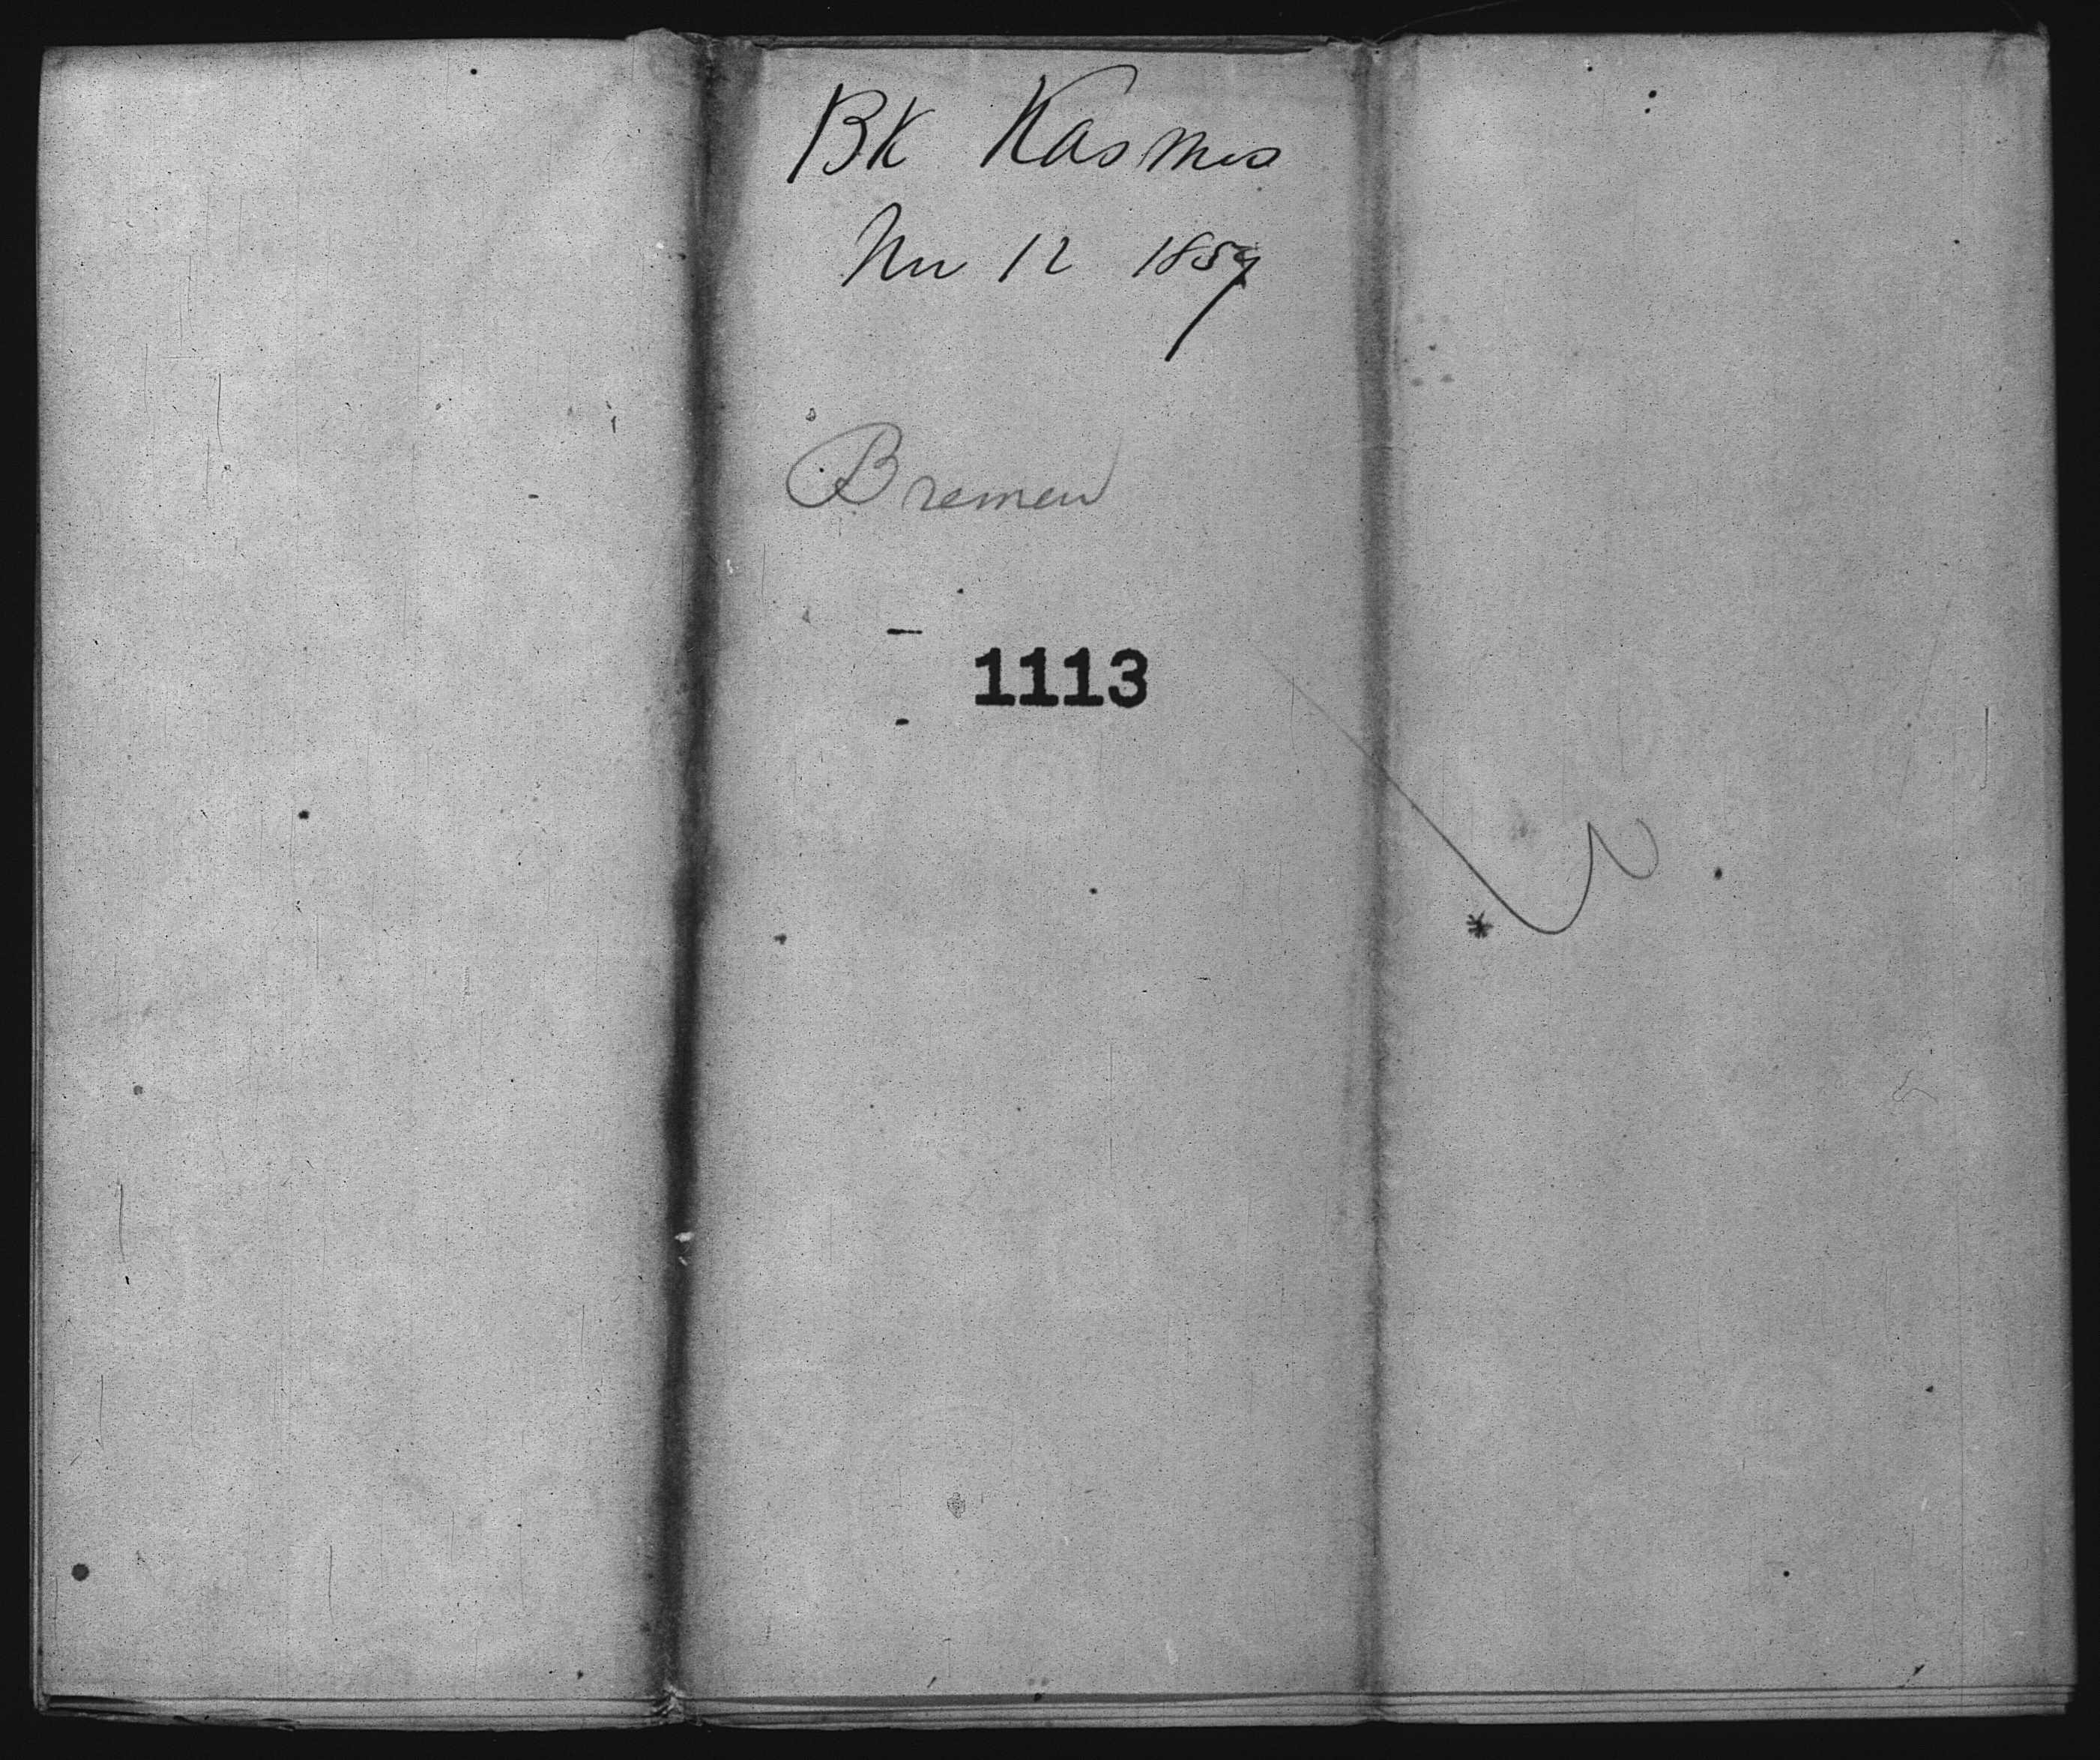 BK Kasmos
Nov 12 1859
Bremen
1113